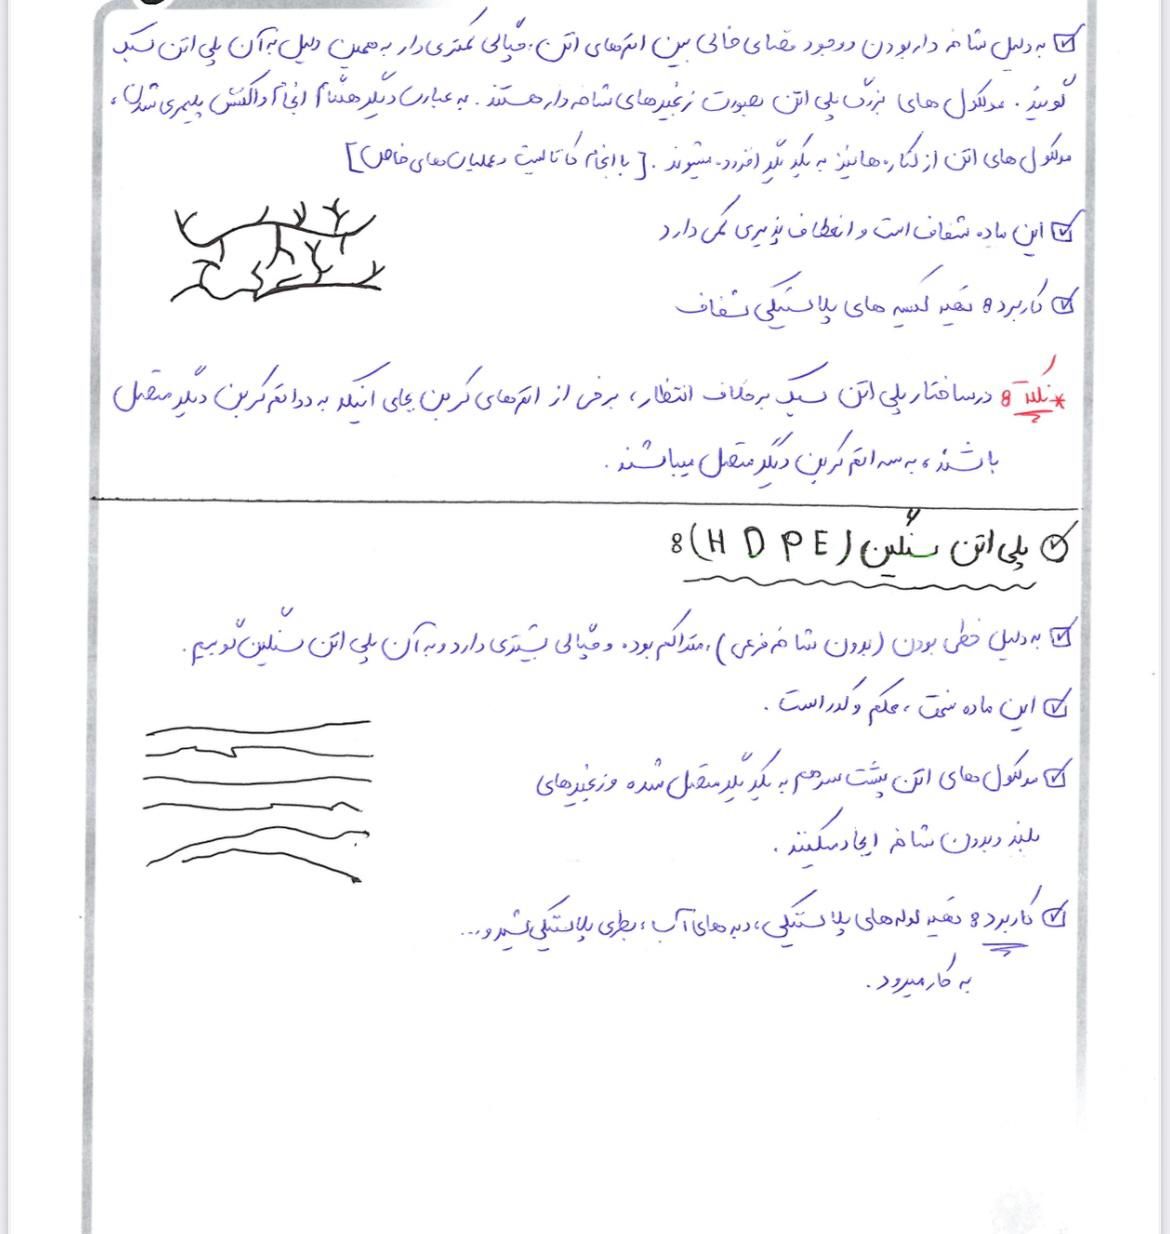 به دلیل شاخه دار بودن و وجود فضای خالی بین اتم‌های اتن، چگالی کمتری دارد به همین دلیل به آن پلی اتن سبک
گویند. مولکول های بزرگ پلی اتن بصورت زنجیرهای شاخه دار هستند. به عبارت دیگر هنگام انجام واکنش پلیمری شدن،
مولکول های اتن از کناره‌ها نیز به یکدیگر افزوده میشوند. [با انجام کاتالیست و عملیات‌های خاص]
این ماده شفاف است و انعطاف پذیری کمی دارد
کاربرد: تهیه کیسه های پلاستیکی شفاف
*نکته: در ساختار پلی اتن سبک برخلاف انتظار، برخی از اتم‌های کربن بجای آنیکه به دو اتم کربن دیگر متصل
باشند، به سه اتم کربن دیگر متصل میباشند.
پلی اتن سنگین (HDPE):
به دلیل خطی بودن (بدون شاخه فرعی)، متراکم بوده و چگالی بیشتری دارد و به آن پلی اتن سنگین گوییم.
این ماده سخت، محکم و کدر است.
مولکول های اتن پشت سر هم به یکدیگر متصل شده و زنجیرهای
بلند و بدون شاخه ایجاد میکنند.
کاربرد: تهیه لوله‌های پلاستیکی، دبه های آب، بطری پلاستیکی شیر و...
به کار میرود.